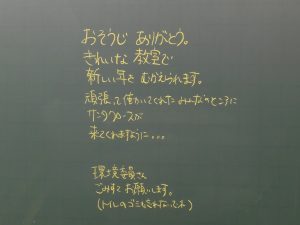 おそうじ ありがとう。
きれいな 教室で
新しい年を むかえられます。
頑張って働いてくれた みんなのところに
サンタクロースが
来てくれますように...
環境委員さん
ごみすて お願いします。
(トイレのゴミも忘れないでネ)